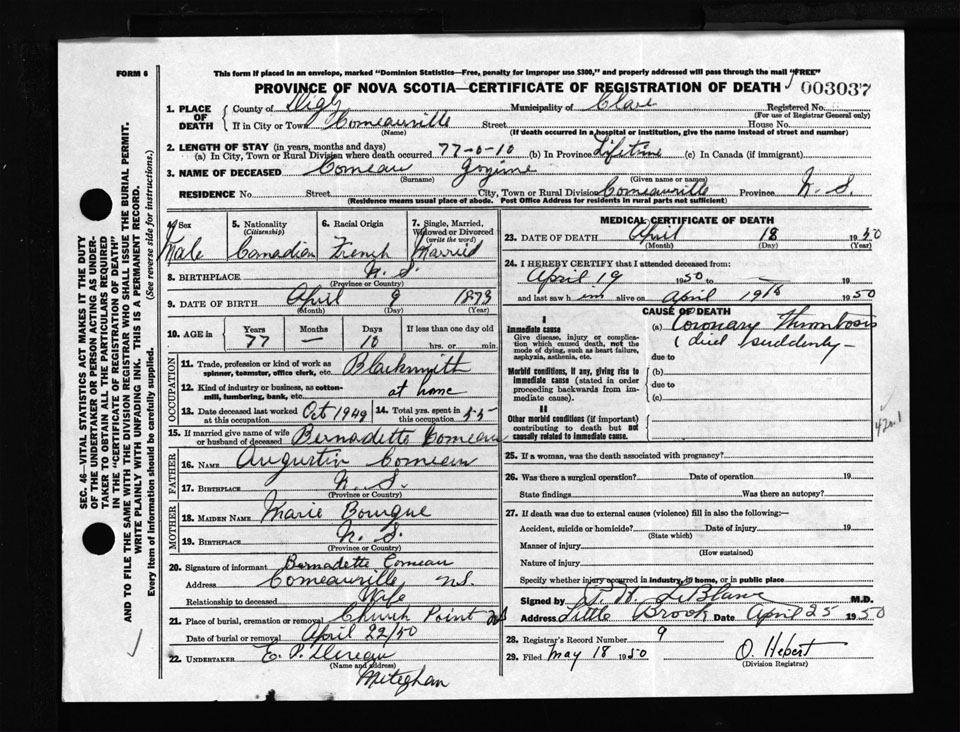 FORM 6
This form if placed in an envelope, marked "Dominion Statistics—Free, penalty for improper use $300," and properly addressed will pass through the mail "FREE"
PROVINCE OF NOVA SCOTIA—CERTIFICATE OF REGISTRATION OF DEATH
003037
1. PLACE OF DEATH County of Digby Municipality of Clare Registered No.
(For use of Registrar General only)
If in City or Town Comeauville Street House No.
(Name) (If death occurred in a hospital or institution, give the name instead of street and number)
2. LENGTH OF STAY (in years, months and days)
(a) In City, Town or Rural Division where death occurred 77-0-10 (b) In Province Lifetime (c) In Canada (if immigrant)
3. NAME OF DECEASED Comeau
(Surname) (Given name or names)
RESIDENCE No. Street City, Town or Rural Division Comeauville Province N. S.
(Residence means usual place of abode. Post Office Address for residents in rural parts not sufficient)
4. Sex Male
5. Nationality (Citizenship) Canadian
6. Racial Origin French
7. Single, Married, Widowed or Divorced (write the word) Married
8. BIRTHPLACE N. S.
(Province or Country)
9. DATE OF BIRTH April 9 1873
(Month) (Day) (Year)
10. AGE in Years Months Days If less than one day old
77 — 10 hrs. or min.
OCCUPATION
11. Trade, profession or kind of work as spinner, teamster, office clerk, etc. Blacksmith
12. Kind of industry or business, as cotton-mill, lumbering, bank, etc. at home
13. Date deceased last worked at this occupation Oct 1949
14. Total yrs. spent in this occupation 55
15. If married give name of wife or husband of deceased Bernadette Comeau
FATHER
16. NAME Augustin Comeau
17. BIRTHPLACE N. S.
(Province or Country)
MOTHER
18. MAIDEN NAME Marie Bourque
19. BIRTHPLACE N. S.
(Province or Country)
20. Signature of informant Bernadette Comeau
Address Comeauville N.S.
Relationship to deceased Wife
21. Place of burial, cremation or removal Church Point NS
Date of burial or removal April 22/50
22. UNDERTAKER E. P.
(Name and address)
Meteghan
MEDICAL CERTIFICATE OF DEATH
23. DATE OF DEATH April 18 1950
(Month) (Day) (Year)
24. I HEREBY CERTIFY that I attended deceased from:
April 19 1950 to — 19
and last saw him alive on April 19th 1950
CAUSE OF DEATH
I
Immediate cause
Give disease, injury or complication which caused death, not the mode of dying, such as heart failure, asphyxia, asthenia, etc.
(a) Coronary Thrombosis
(died suddenly—
due to
Morbid conditions, if any, giving rise to immediate cause (stated in order proceeding backwards from immediate cause).
(b)
due to
(c)
II
Other morbid conditions (if important) contributing to death but not causally related to immediate cause.
25. If a woman, was the death associated with pregnancy?
26. Was there a surgical operation? Date of operation 19
State findings Was there an autopsy?
27. If death was due to external causes (violence) fill in also the following:—
Accident, suicide or homicide? Date of injury 19
(State which)
Manner of injury
(How sustained)
Nature of injury
Specify whether injury occurred in industry, in home, or in public place
Signed by LeBlanc M.D.
Address Little Brook Date April 25 1950
28. Registrar's Record Number 9
29. Filed May 18 1950 O. Hebert
(Division Registrar)
SEC. 46—VITAL STATISTICS ACT MAKES IT THE DUTY
OF THE UNDERTAKER OR PERSON ACTING AS UNDER-
TAKER TO OBTAIN ALL THE PARTICULARS REQUIRED
IN THE "CERTIFICATE OF REGISTRATION OF DEATH"
AND TO FILE THE SAME WITH THE DIVISION REGISTRAR WHO SHALL ISSUE THE BURIAL PERMIT.
WRITE PLAINLY WITH UNFADING INK. THIS IS A PERMANENT RECORD.
Every item of information should be carefully supplied. (See reverse side for instructions.)